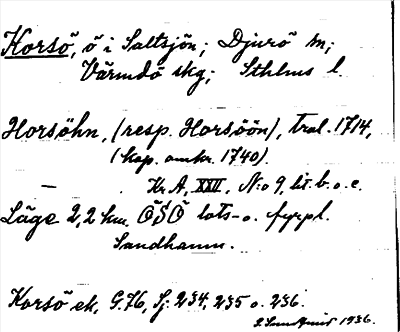 Korsö, ö i Saltsjön; Djurö sn;
Värmdö skg; Sthlms l.
Horsöhn, (resp. Horsöön), tral. 1714,
(kop. omkr. 1740).
— . Kr. A, XXII, N:o 9, lit. b. o. c.
Läge 2,2 km. ÖSÖ lots- o. fyrpl.
Sandhamn.
Korsö ek, G. 76, Sj. 234, 235 o. 236.
1936.